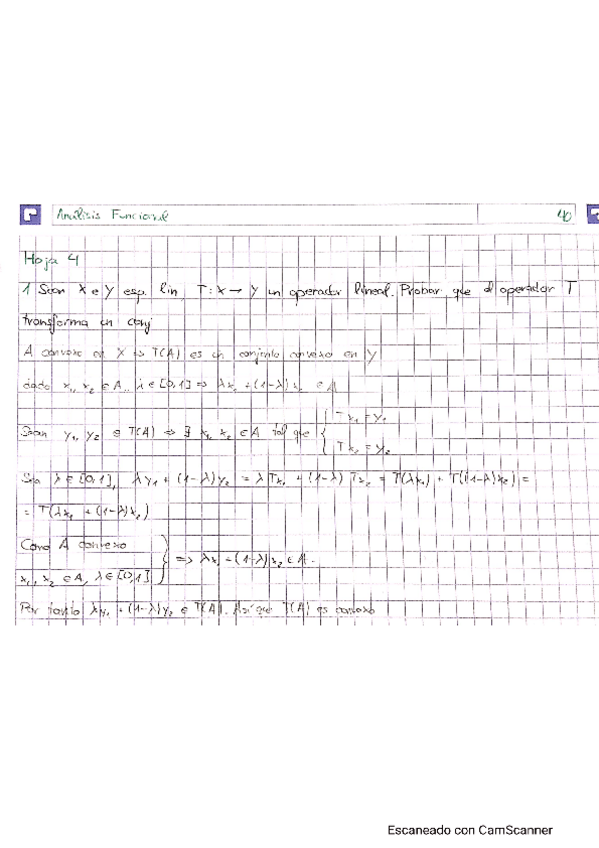 Análisis Funcional 40
Hoja 4
1 Sean X e Y esp. lin T: X → Y un operador lineal. Probar que el operador T
transforma un conj
A convexo en X ⇒ T(A) es un conjunto convexo en Y
dado x₁, x₂ ∈ A, λ ∈ [0,1] ⇒ λx₁ + (1-λ)x₂ ∈ A
Sean y₁, y₂ ∈ T(A) ⇒ ∃ x₁, x₂ ∈ A tal que { Tx₁ = y₁
Tx₂ = y₂
Sea λ ∈ [0,1], λy₁ + (1-λ)y₂ = λTx₁ + (1-λ)Tx₂ = T(λx₁) + T((1-λ)x₂) =
= T(λx₁ + (1-λ)x₂)
Como A convexo
x₁, x₂ ∈ A, λ ∈ [0,1] } ⇒ λx₁ + (1-λ)x₂ ∈ A.
Por tanto λy₁ + (1-λ)y₂ ∈ T(A). Así que T(A) es convexo
Escaneado con CamScanner